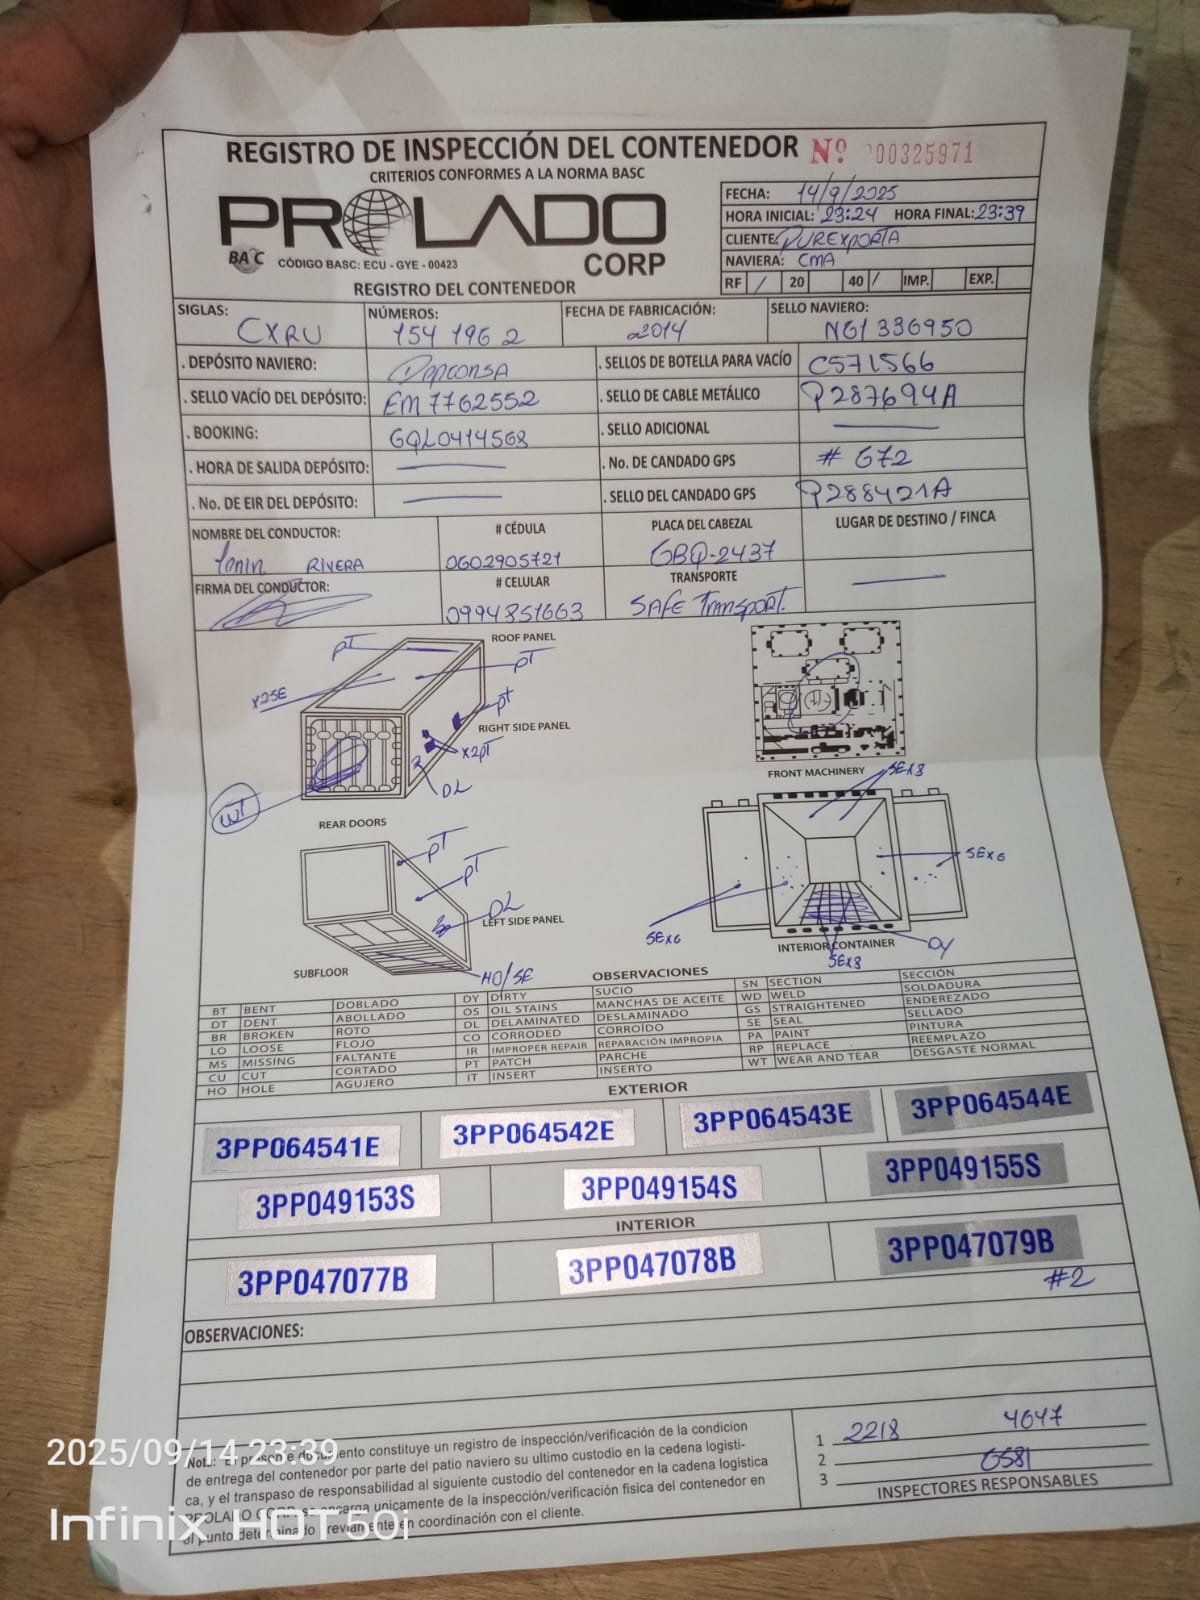 REGISTRO DE INSPECCIÓN DEL CONTENEDOR Nº 00325971
CRITERIOS CONFORMES A LA NORMA BASC
PROLADO CORP
BASC CÓDIGO BASC: ECU - GYE - 00423
FECHA: 14/9/2025
HORA INICIAL: 23:24 HORA FINAL: 23:39
CLIENTE: PUREXPORTA
NAVIERA: CMA
RF / 20 40 / IMP. EXP.
REGISTRO DEL CONTENEDOR
SIGLAS: CXRU
NÚMEROS: 154 196 2
FECHA DE FABRICACIÓN: 2014
SELLO NAVIERO: NG1336950
. DEPÓSITO NAVIERO: Depconsa
. SELLOS DE BOTELLA PARA VACÍO C571566
. SELLO VACÍO DEL DEPÓSITO: EM7762552
. SELLO DE CABLE METÁLICO P287694A
. BOOKING: GQL0414568
. SELLO ADICIONAL
. HORA DE SALIDA DEPÓSITO:
. No. DE CANDADO GPS # 672
. No. DE EIR DEL DEPÓSITO:
. SELLO DEL CANDADO GPS P288421A
NOMBRE DEL CONDUCTOR: RIVERA
# CÉDULA 0602905721
PLACA DEL CABEZAL GBQ-2437
LUGAR DE DESTINO / FINCA
FIRMA DEL CONDUCTOR:
# CELULAR 0994851663
TRANSPORTE SAFE Transport.
PT
ROOF PANEL
PT
X2SE
PT
RIGHT SIDE PANEL
X2PT
DL
WT
REAR DOORS
FRONT MACHINERY
SEX8
PT
PT
DL
LEFT SIDE PANEL
SUBFLOOR
HO/SE
SEX6
SEX6
INTERIOR CONTAINER
DY
SEX8
OBSERVACIONES
BT BENT DOBLADO DY DIRTY SUCIO SN SECTION SECCIÓN
DT DENT ABOLLADO OS OIL STAINS MANCHAS DE ACEITE WD WELD SOLDADURA
BR BROKEN ROTO DL DELAMINATED DESLAMINADO GS STRAIGHTENED ENDEREZADO
LO LOOSE FLOJO CO CORRODED CORROÍDO SE SEAL SELLADO
MS MISSING FALTANTE IR IMPROPER REPAIR REPARACIÓN IMPROPIA PA PAINT PINTURA
CU CUT CORTADO PT PATCH PARCHE RP REPLACE REEMPLAZO
HO HOLE AGUJERO IT INSERT INSERTO WT WEAR AND TEAR DESGASTE NORMAL
EXTERIOR
3PP064541E 3PP064542E 3PP064543E 3PP064544E
3PP049153S 3PP049154S 3PP049155S
INTERIOR
3PP047077B 3PP047078B 3PP047079B
#2
OBSERVACIONES:
Nota: El presente documento constituye un registro de inspección/verificación de la condicion
de entrega del contenedor por parte del patio naviero su ultimo custodio en la cedena logisti-
ca, y el transpaso de responsabilidad al siguiente custodio del contenedor en la cadena logistica
PROLADO CORP se encarga unicamente de la inspección/verificación fisica del contenedor en
el punto determinado previamente en coordinación con el cliente.
1 2218 4647
2 6581
3
INSPECTORES RESPONSABLES
2025/09/14 23:39
Infinix HOT 50i